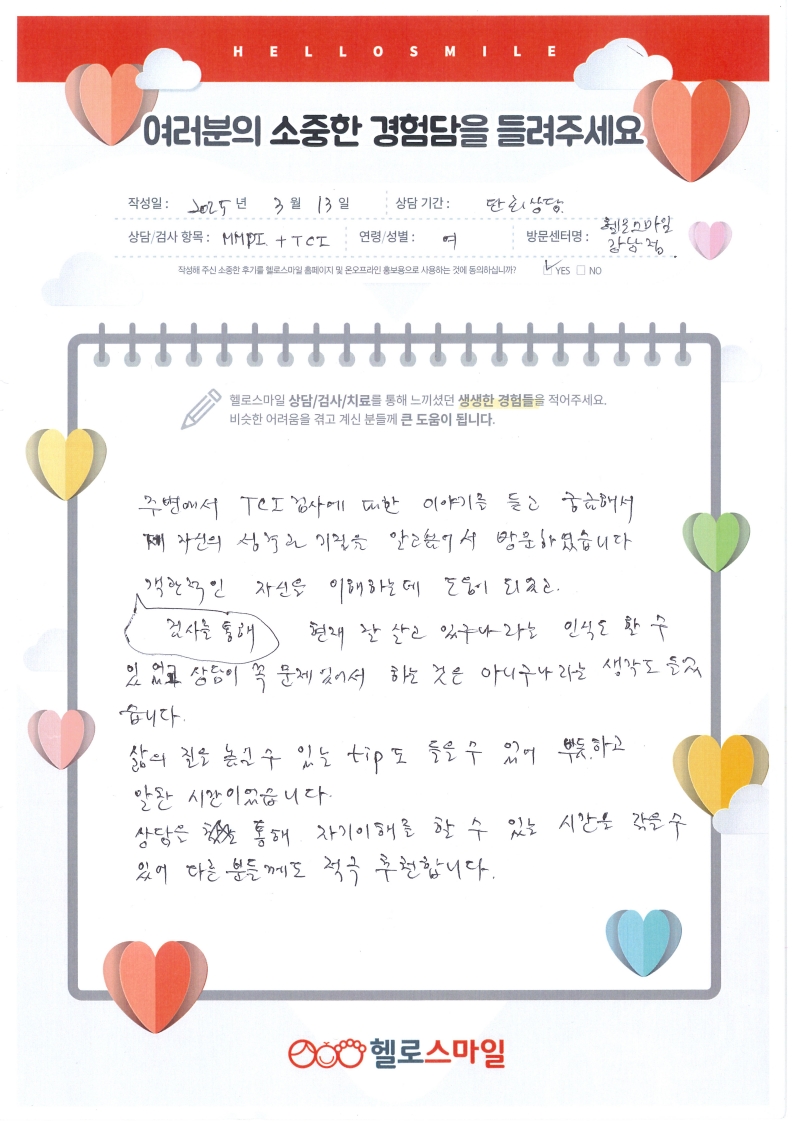 HELLOSMILE
여러분의 소중한 경험담을 들려주세요
작성일 : 2025 년 3 월 13 일 상담 기간 : 단회상담.
상담/검사 항목 : MMPI + TCI 연령/성별 : 여 방문센터명 : 헬로스마일 강남점.
작성해 주신 소중한 후기를 헬로스마일 홈페이지 및 온오프라인 홍보용으로 사용하는 것에 동의하십니까? ☑ YES ☐ NO
헬로스마일 상담/검사/치료를 통해 느끼셨던 생생한 경험들을 적어주세요.
비슷한 어려움을 겪고 계신 분들께 큰 도움이 됩니다.
주변에서 TCI 검사에 대한 이야기를 듣고 궁금해서
제 자신의 성격과 기질을 알고싶어서 방문하였습니다
객관적인 자신을 이해하는데 도움이 되었고.
검사를 통해 현재 잘 살고 있구나 라는 인식도 할 수
있었고 상담이 꼭 문제 있어서 하는 것은 아니구나 라는 생각도 들었
습니다.
삶의 질을 높일 수 있는 tip도 들을 수 있어 뿌듯하고
알찬 시간이었습니다.
상담을 통해 자기이해를 할 수 있는 시간을 갖을 수
있어 다른 분들께도 적극 추천합니다.
헬로스마일